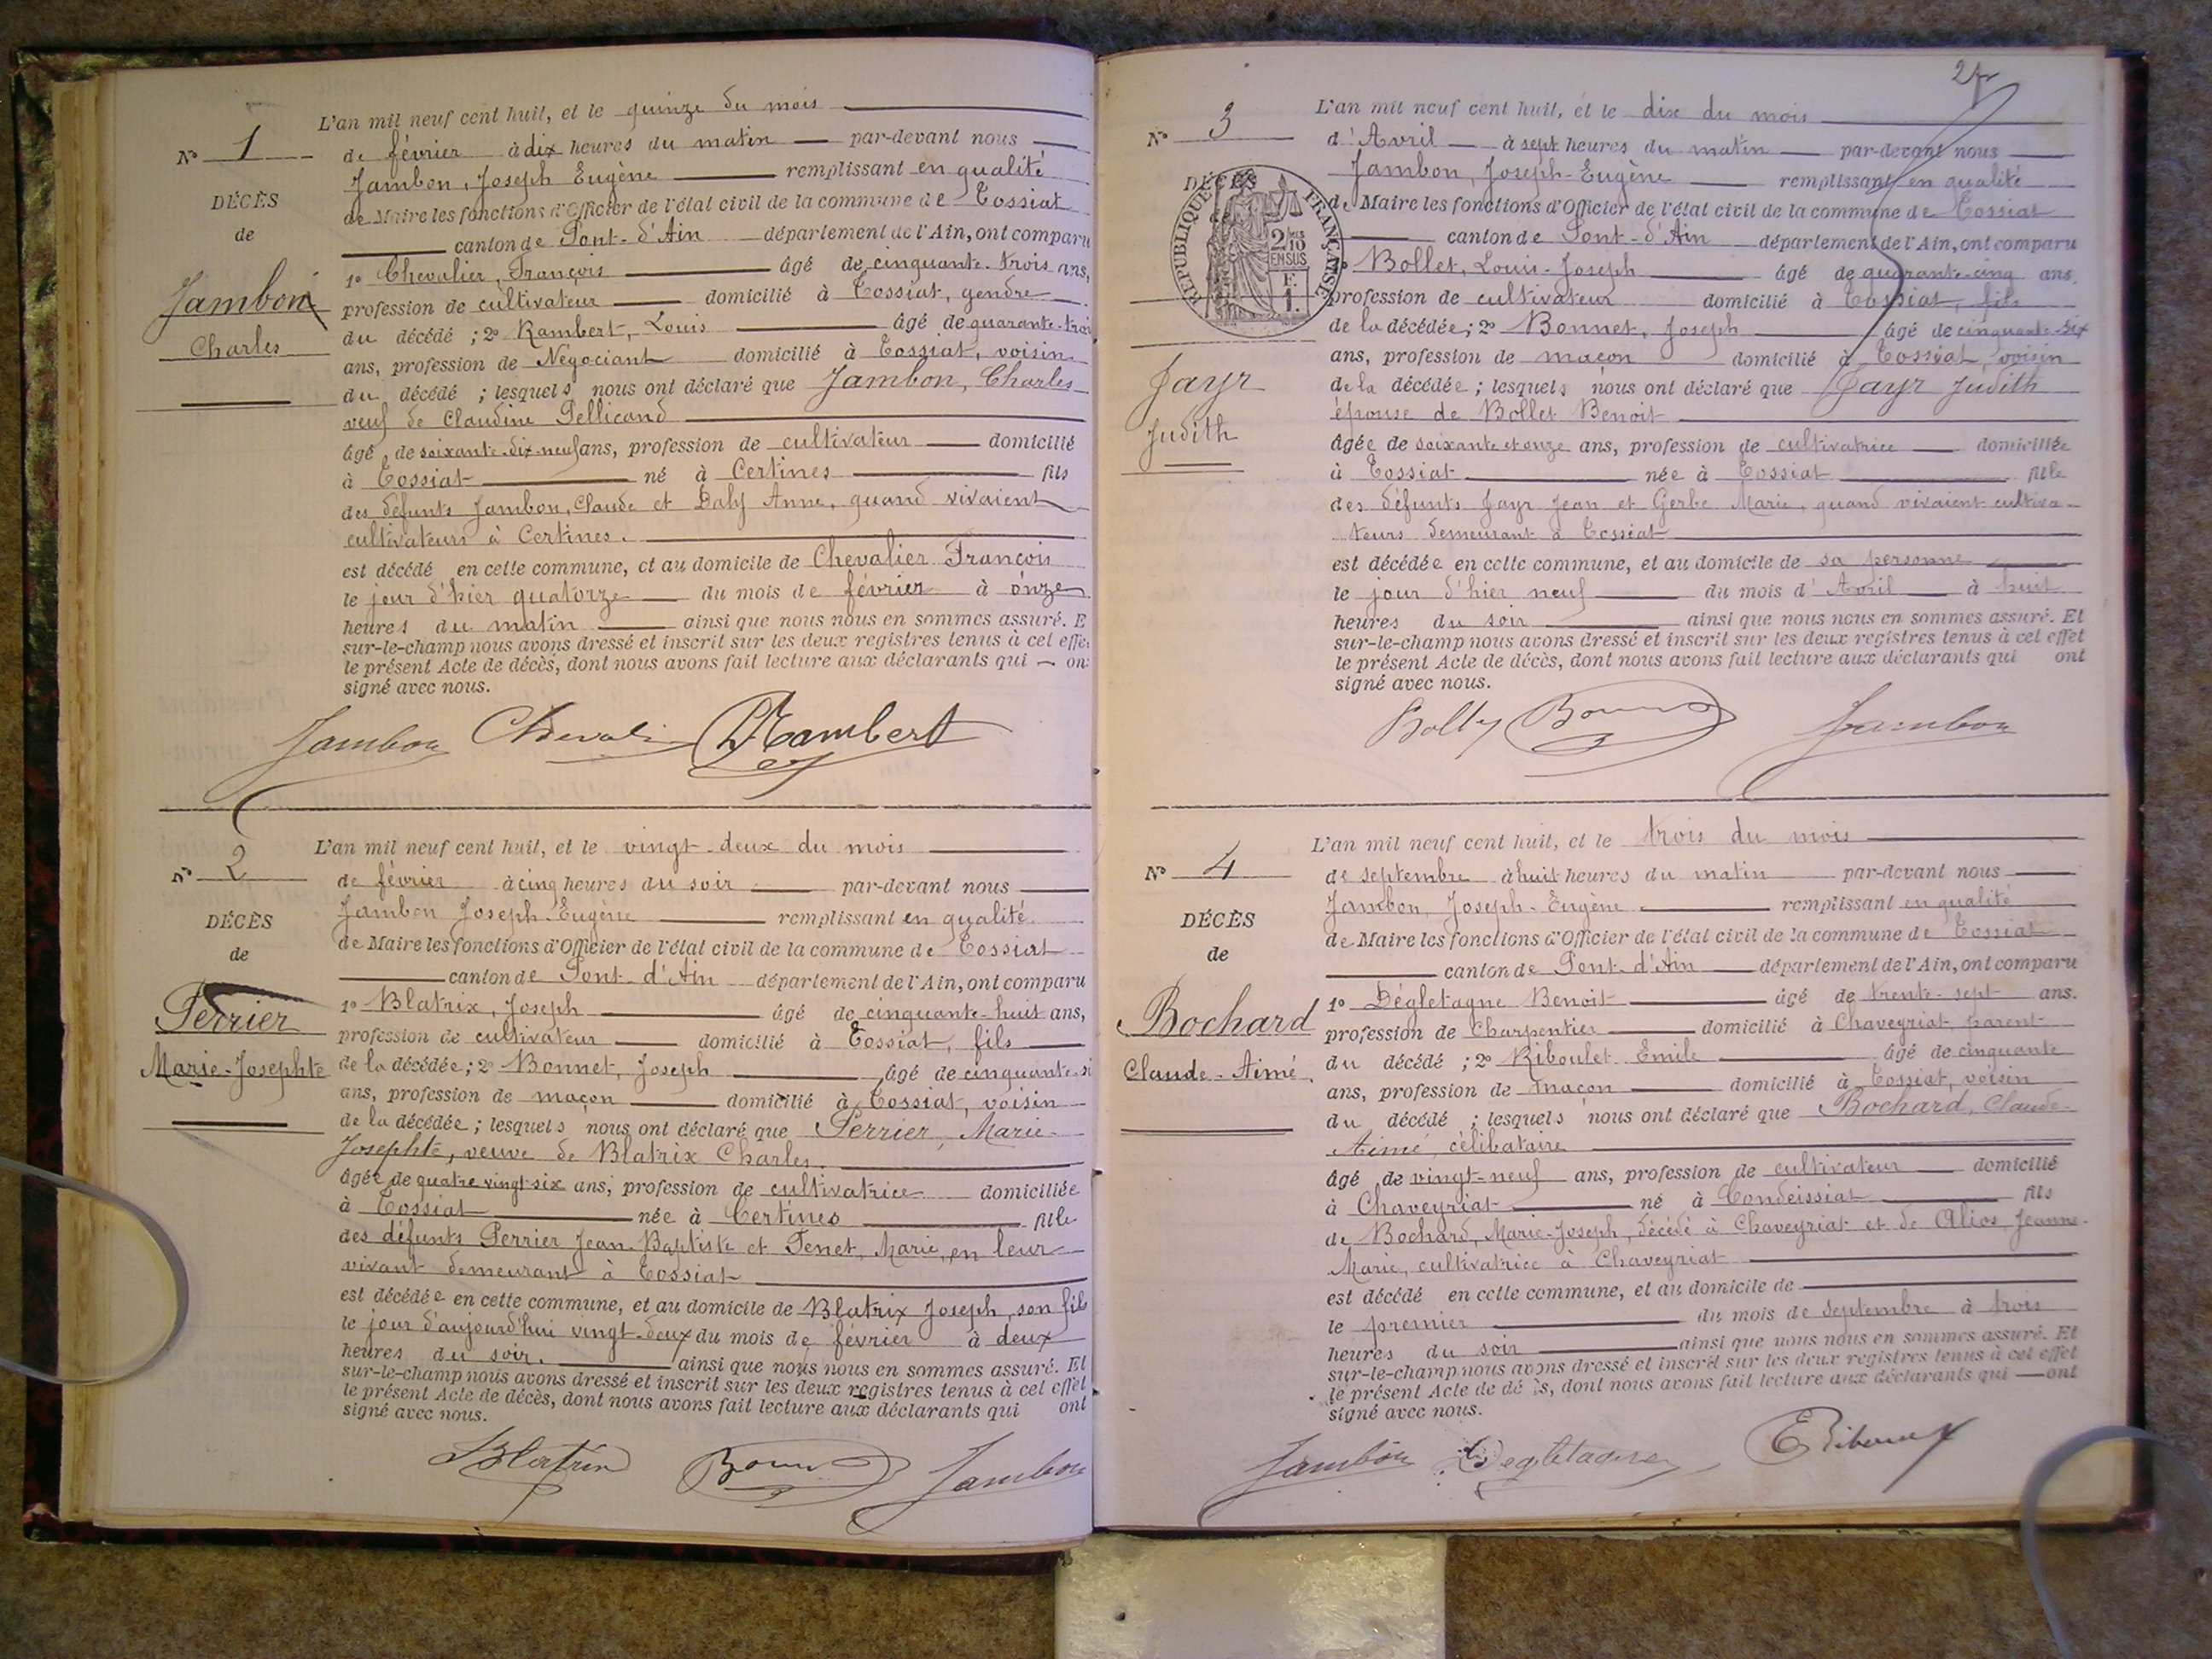 L'an mil neuf cent huit, et le quinze du mois
N° 1
de février à dix heures du matin par-devant nous
Jambon, Joseph Eugène remplissant en qualité
DÉCÈS
de Maire les fonctions d'Officier de l'état civil de la commune de Tossiat
de
canton de Pont-d'Ain département de l'Ain, ont comparu
1° Chevalier, François âgé de cinquante-trois ans,
Jambon
profession de cultivateur domicilié à Tossiat, gendre
Charles
du décédé ; 2° Rambert, Louis âgé de quarante-trois
ans, profession de Négociant domicilié à Tossiat, voisin
du décédé ; lesquels nous ont déclaré que Jambon, Charles
veuf de Claudine Pellicand
âgé de soixante-dix-neuf ans, profession de cultivateur domicilié
à Tossiat né à Certines fils
des défunts Jambon, Claude et Anne, quand vivaient
cultivateurs à Certines.
est décédé en cette commune, et au domicile de Chevalier François
le jour d'hier quatorze du mois de février à onze
heures du matin ainsi que nous nous en sommes assuré. E
sur-le-champ nous avons dressé et inscrit sur les deux registres tenus à cet effe
le présent Acte de décès, dont nous avons fait lecture aux déclarants qui on
signé avec nous.
Jambon Chevalier LRambert
L'an mil neuf cent huit, et le vingt-deux du mois
N° 2
de février à cinq heures du soir par-devant nous
Jambon Joseph-Eugène remplissant en qualité
DÉCÈS
de Maire les fonctions d'Officier de l'état civil de la commune de Tossiat
de
canton de Pont-d'Ain département de l'Ain, ont comparu
1° Blatrix, Joseph âgé de cinquante-huit ans,
Perrier
profession de cultivateur domicilié à Tossiat, fils
Marie-Josephte
de la décédée ; 2° Bonnet, Joseph âgé de cinquante-si
ans, profession de maçon domicilié à Tossiat, voisin
de la décédée ; lesquels nous ont déclaré que Perrier, Marie-
Josephte, veuve de Blatrix Charles.
âgée de quatre vingt-six ans, profession de cultivatrice domiciliée
à Tossiat née à Certines fille
des défunts Perrier Jean-Baptiste et Tenet, Marie, en leur
vivant demeurant à Tossiat
est décédée en cette commune, et au domicile de Blatrix Joseph, son fils
le jour d'aujourd'hui vingt-deux du mois de février à deux
heures du soir. ainsi que nous nous en sommes assuré. Et
sur-le-champ nous avons dressé et inscrit sur les deux registres tenus à cet effet
le présent Acte de décès, dont nous avons fait lecture aux déclarants qui ont
signé avec nous.
Blatrix Bonnet Jambon
L'an mil neuf cent huit, et le dix du mois
N° 3
d'Avril à sept heures du matin par-devant nous
Jambon, Joseph-Eugène remplissant en qualité
DÉCÈS
de Maire les fonctions d'Officier de l'état civil de la commune de Tossiat
de
RÉPUBLIQUE FRANÇAISE
2/10 EN SUS
F. 1.
canton de Pont-d'Ain département de l'Ain, ont comparu
Bollet, Louis-Joseph âgé de quarante-cinq ans.
profession de cultivateur domicilié à Tossiat, fils
de la décédée ; 2° Bonnet, Joseph âgé de cinquante-six
ans, profession de maçon domicilié à Tossiat, voisin
Jayr
de la décédée ; lesquels nous ont déclaré que Jayr Judith
épouse de Bollet Benoit
Judith
âgée de soixante et onze ans, profession de cultivatrice domiciliée
à Tossiat née à Tossiat fille
des défunts Jayr Jean et Gerbe Marie, quand vivaient cultiva-
teurs demeurant à Tossiat
est décédée en cette commune, et au domicile de sa personne
le jour d'hier neuf du mois d'Avril à huit
heures du soir ainsi que nous nous en sommes assuré. Et
sur-le-champ nous avons dressé et inscrit sur les deux registres tenus à cet effet
le présent Acte de décès, dont nous avons fait lecture aux déclarants qui ont
signé avec nous.
Bollet Bonnet Jambon
L'an mil neuf cent huit, et le trois du mois
N° 4
de septembre à huit heures du matin par-devant nous
Jambon, Joseph-Eugène remplissant en qualité
DÉCÈS
de Maire les fonctions d'Officier de l'état civil de la commune de Tossiat
de
canton de Pont-d'Ain département de l'Ain, ont comparu
1° Dégletagne Benoit âgé de trente-sept ans.
Bochard
profession de Charpentier domicilié à Chaveyriat, parent
Claude-Aimé.
du décédé ; 2° Riboulet Emile âgé de cinquante
ans, profession de maçon domicilié à Tossiat, voisin
du décédé ; lesquels nous ont déclaré que Bochard, Claude-
Aimé, célibataire
âgé de vingt-neuf ans, profession de cultivateur domicilié
à Chaveyriat né à Condeissiat fils
de Bochard, Marie-Joseph, décédé à Chaveyriat et de Alios, Jeanne-
Marie, cultivatrice à Chaveyriat
est décédé en cette commune, et au domicile de
le premier du mois de septembre à trois
heures du soir ainsi que nous nous en sommes assuré. Et
sur-le-champ nous avons dressé et inscrit sur les deux registres tenus à cet effet
le présent Acte de dé ès, dont nous avons fait lecture aux déclarants qui ont
signé avec nous.
Jambon Degletagne E Riboulet